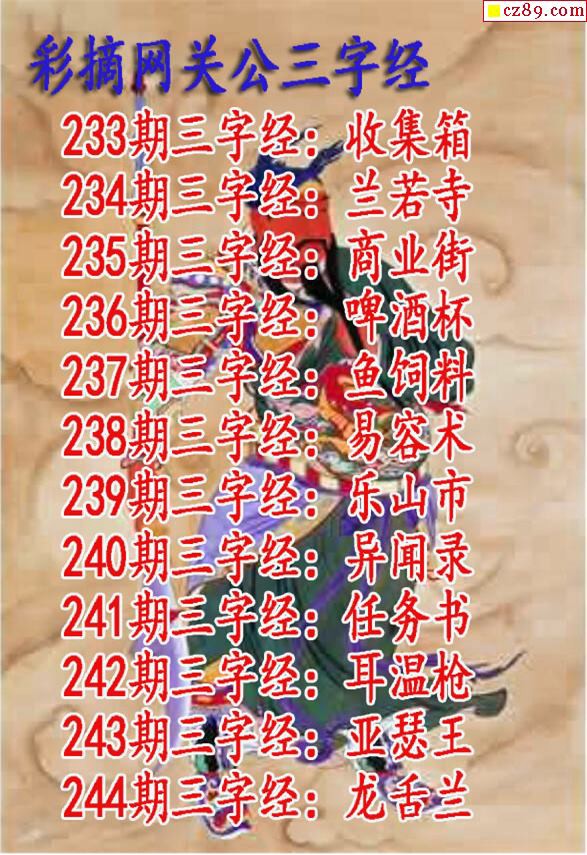 cz89.com
彩摘网关公三字经
233期三字经：收集箱
234期三字经：兰若寺
235期三字经：商业街
236期三字经：啤酒杯
237期三字经：鱼饲料
238期三字经：易容术
239期三字经：乐山市
240期三字经：异闻录
241期三字经：任务书
242期三字经：耳温枪
243期三字经：亚瑟王
244期三字经：龙舌兰